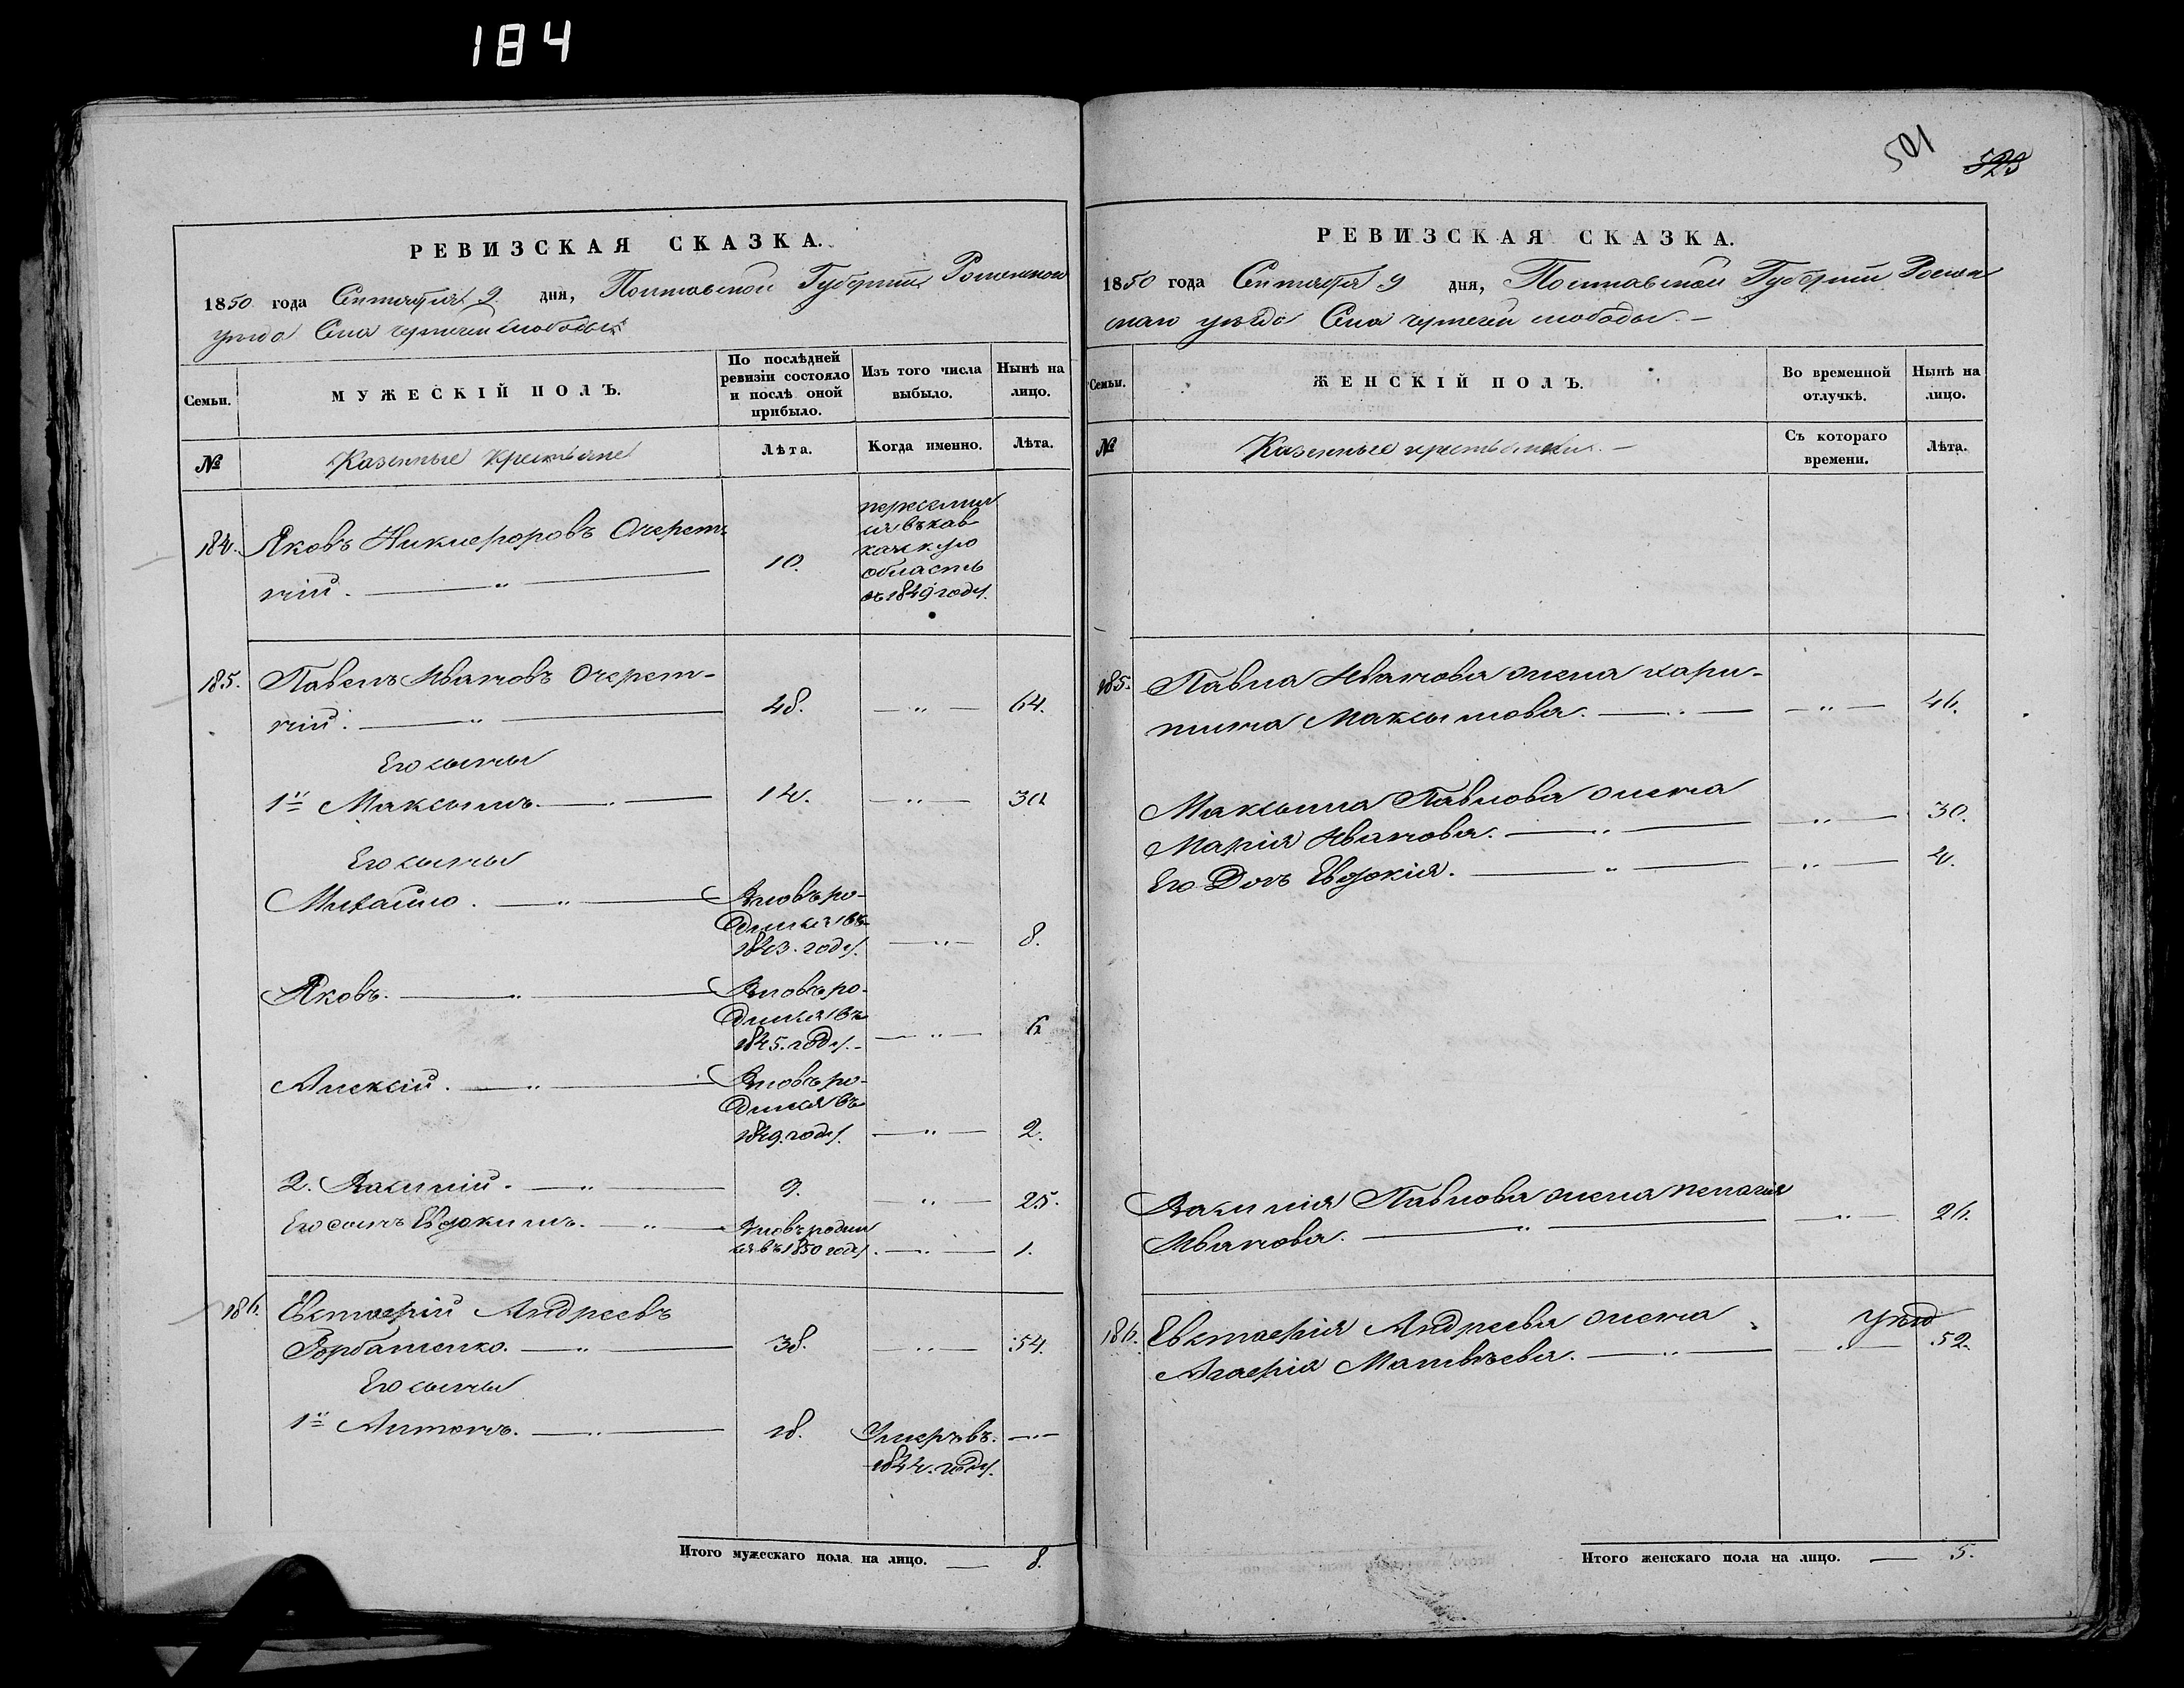 184
РЕВИЗСКАЯ СКАЗКА.
1850 года Сентября 9 дня, Полтавской Губерніи Роменскаго
уезда Села чернечей слободы
Семьи.
МУЖЕСКІЙ ПОЛЪ.
По послѣдней
ревизіи состояло
и послѣ оной
прибыло.
Изъ того числа
выбыло.
Нынѣ на
лицо.
№
Казенные Крестьяне
Лѣта.
Когда именно.
Лѣта.
184. Яковъ Никифоровъ Очерет-
ній. 10.
переселил
ся въ кав
казскую
область
въ 1849 году.
185. Павелъ Ивановъ Очерет-
ній. 48. 64.
Его сыны
1й Максымъ. 14. 30
Его сыны
Михайло. Вновь ро-
дился въ
1843. году. 8.
Яковъ. Вновь ро-
дился въ
1845. году. 6
Алексій. Вновь ро-
дился въ
1849. году. 2.
2. Василій. 9. 25.
Его сынъ Евдокимъ. Вновь родил
ся въ 1850 году. 1.
186. Евстафій Андреевъ
Горбатенко. 38. 54.
Его сыны
1й Антонъ. 18. Умеръ въ
1844. году.
Итого мужескаго пола на лицо. 8.
501
525
РЕВИЗСКАЯ СКАЗКА.
1850 года Сентября 9 дня, Полтавской Губерніи Ромен
скаго уезда Села чернечей слободы.
Семьи.
ЖЕНСКІЙ ПОЛЪ.
Во временной
отлучкѣ.
Нынѣ на
лицо.
№
Казенные крестьянки.
Съ котораго
времени.
Лѣта.
185. Павла Иванова жена хари-
тина Максымова. 46.
Максыма Павлова жена
Марія Иванова. 30.
Его Дочь Евдокія. 4.
Василія Павлова жена пелагія
Иванова. 26.
186. Евстафія Андреева жена
Агафія Матвѣева. 52.
Итого женскаго пола на лицо. 5.